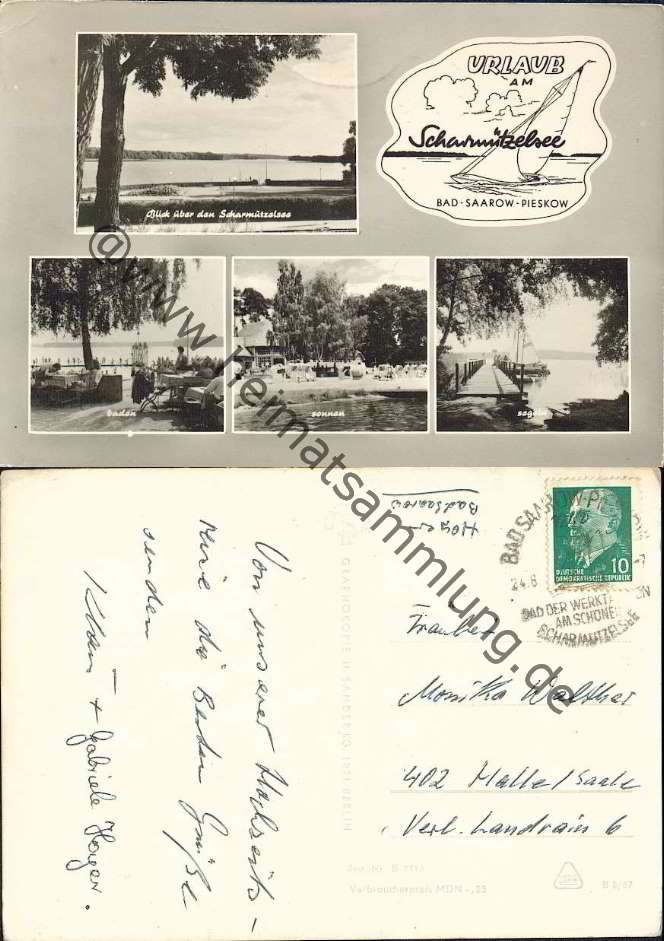 URLAUB
AM
Scharmützelsee
BAD-SAAROW-PIESKOW
Blick über den Scharmützelsee
baden
sonnen
segeln
@www.heimatsammlung.de
Badsaarow
BAD SAAROW-PIESKOW
24.8
BAD DER WERKTÄTIGEN
AM SCHÖNEN
SCHARMÜTZELSEE
10
DEUTSCHE
DEMOKRATISCHE REPUBLIK
Von unserer Hochzeits-
reise die Besten Grüße
senden
Klaus + Gabriele Hoyer.
Monika Walther
402 Halle/Saale
Verl. Landrain 6
GRAPHOKOPIE H. SANDER KG, 1071 BERLIN
Verbraucherpreis MDN -,25
B 6/67